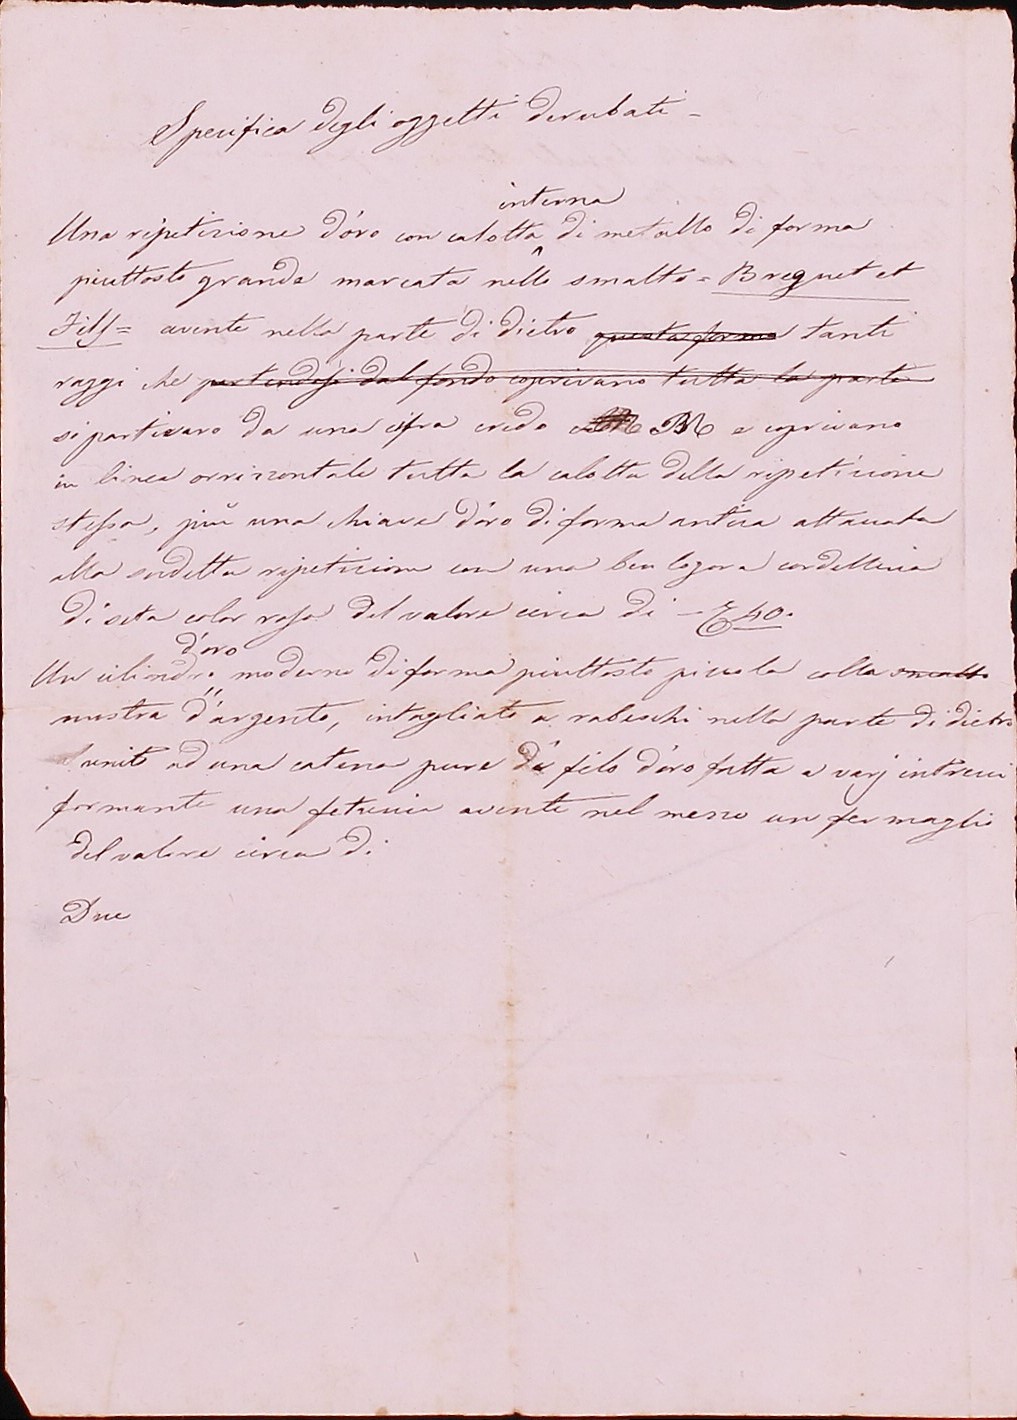 Specifica degli oggetti derubati -
interna
Una ripetizione d'oro con calotta di metallo di forma
piuttosto grande marcata nello smalto = Breguet et
Fils = avente nella parte di dietro questa forma tanti
raggi che partendosi dal fondo coprivano tutta la parte
si partivano da una cifra credo BM e coprivano
in linea orrizzontale tutta la calotta della ripetizione
stessa, più una chiave d'oro di forma antica attaccata
alla suddetta ripetizione con una ben logora cordellina
di seta color rosa del valore circa di - 40.
d'oro
Un cilindro moderno di forma piuttosto piccola colla smalto
mostra d'argento, intagliato a rabeschi nella parte di dietro
unito ad una catena pure di filo d'oro fatta a varj intrecci
formante una fetuccia avente nel mezzo un fermaglio
del valore circa di
Due